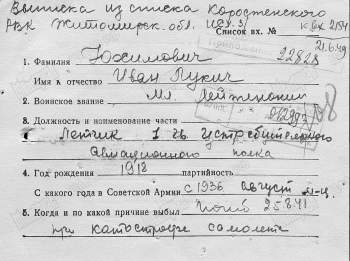 Выписка из списка Коростенского
РВК Житомирск. обл.
Список вх. № 21.6.49
1. Фамилия Юхимович 22828
Имя и отчество Иван Лукич
2. Воинское звание Мл. Лейтенант
3. Должность и наименование части
Летчик 1 гв. истребительного
авиационного полка
4. Год рождения 1918 партийность
С какого года в Советской Армии с 1936 август
5. Когда и по какой причине выбыл погиб 25.8.41
при катострофе самолета